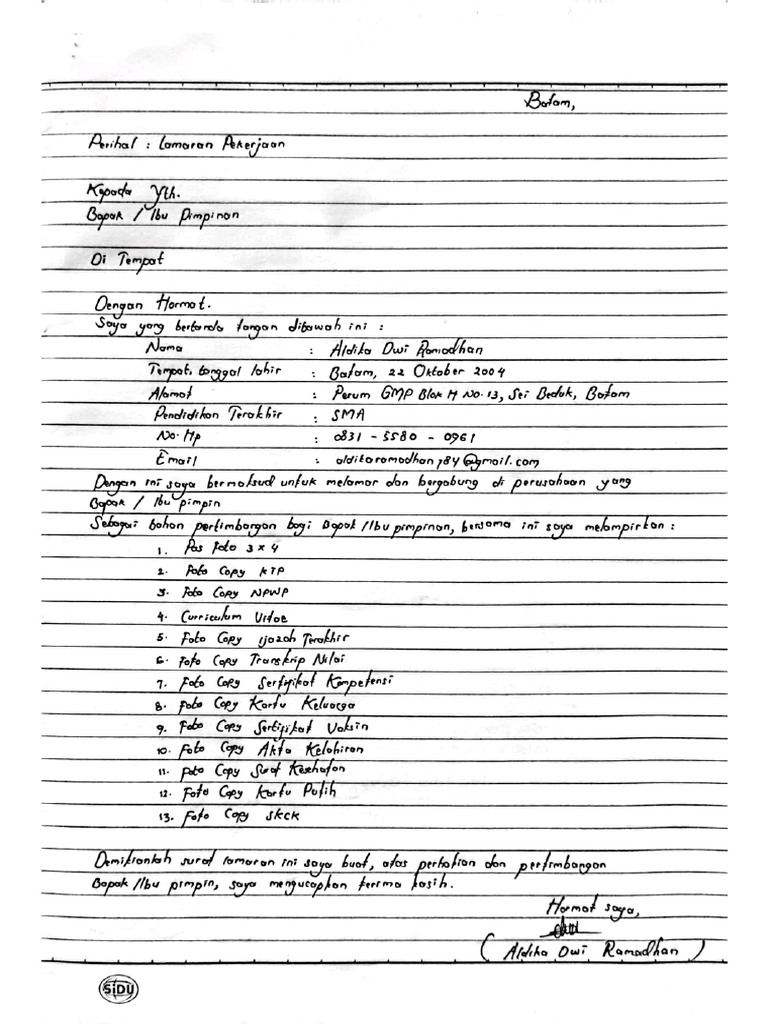 Batam,
Perihal : Lamaran Pekerjaan
Kepada Yth.
Bapak / Ibu Pimpinan
Di Tempat
Dengan Hormat.
Saya yang bertanda tangan dibawah ini :
Nama : Aldika Dwi Ramadhan
Tempat, tanggal lahir : Batam, 22 Oktober 2004
Alamat : Perum GMP Blok M No. 13, Sei Beduk, Batam
Pendidikan Terakhir : SMA
No. Hp : 0831 - 5580 - 0961
Email : aldikaramadhan784@gmail.com
Dengan ini saya bermaksud untuk melamar dan bergabung di perusahaan yang
Bapak / Ibu pimpin
Sebagai bahan pertimbangan bagi Bapak /Ibu pimpinan, bersama ini saya melampirkan :
1. Pas Foto 3 x 4
2. Foto Copy KTP
3. Foto Copy NPWP
4. Curriculum Vitae
5. Foto Copy Ijazah Terakhir
6. Foto Copy Transkrip Nilai
7. Foto Copy Sertifikat Kompetensi
8. Foto Copy Kartu Keluarga
9. Foto Copy Sertifikat Vaksin
10. Foto Copy Akta Kelahiran
11. Foto Copy Surat Kesehatan
12. Foto Copy Kartu Putih
13. Foto Copy SKCK
Demikianlah surat lamaran ini saya buat, atas perhatian dan pertimbangan
Bapak /Ibu pimpin, saya mengucapkan terima kasih.
Hormat saya,
( Aldika Dwi Ramadhan )
SiDU